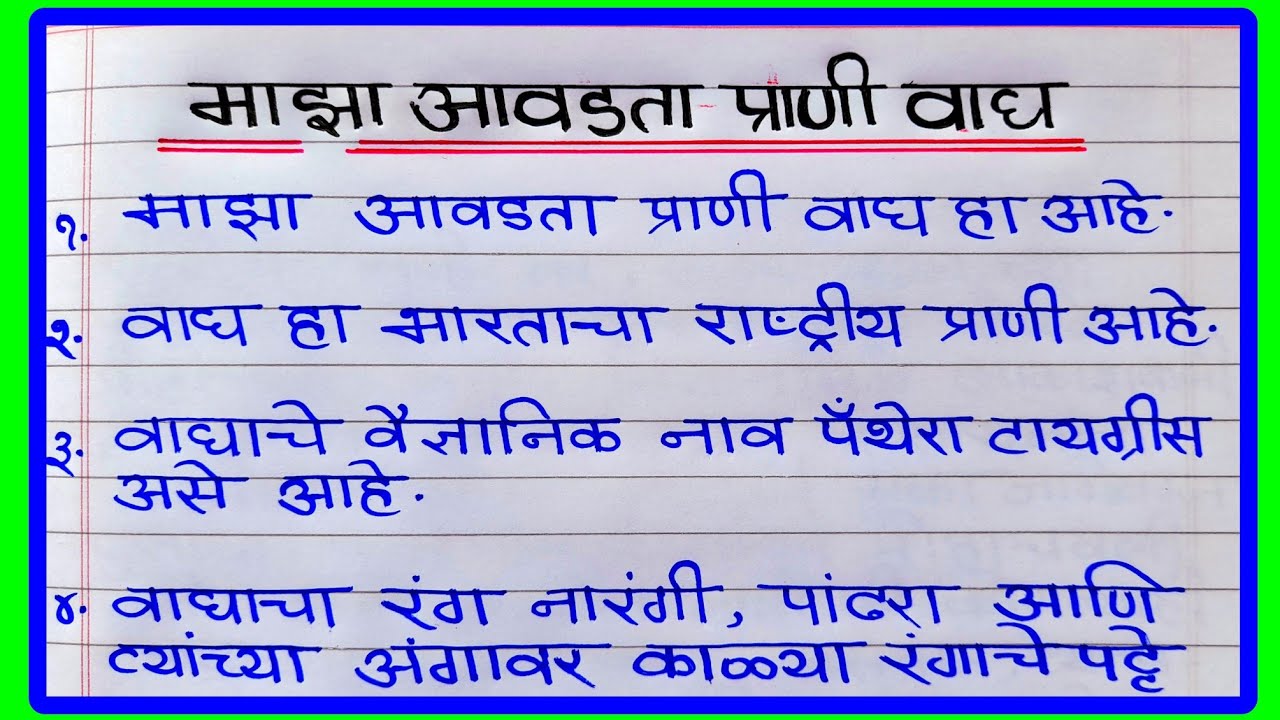 माझा आवडता प्राणी वाघ
१. माझा आवडता प्राणी वाघ हा आहे.
२. वाघ हा भारताचा राष्ट्रीय प्राणी आहे.
३. वाघाचे वैज्ञानिक नाव पँथेरा टायग्रीस
असे आहे.
४. वाघाचा रंग नारंगी, पांढरा आणि
त्यांच्या अंगावर काळ्या रंगाचे पट्टे